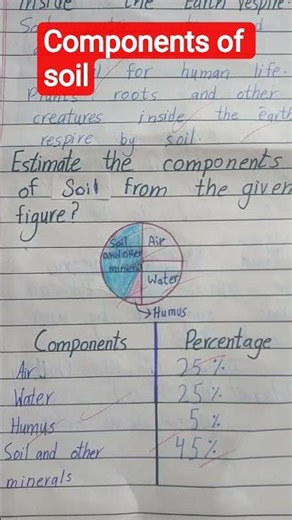 inside the Earth respire.
Components of
soil
for human life.
Plants roots and other
creatures inside the earth
respire by soil.
Estimate the components
of Soil from the given
figure?
Soil
and other
mineral
Air
Water
→Humus
Components Percentage
Air 25%
Water 25%
Humus 5%
Soil and other 45%
minerals